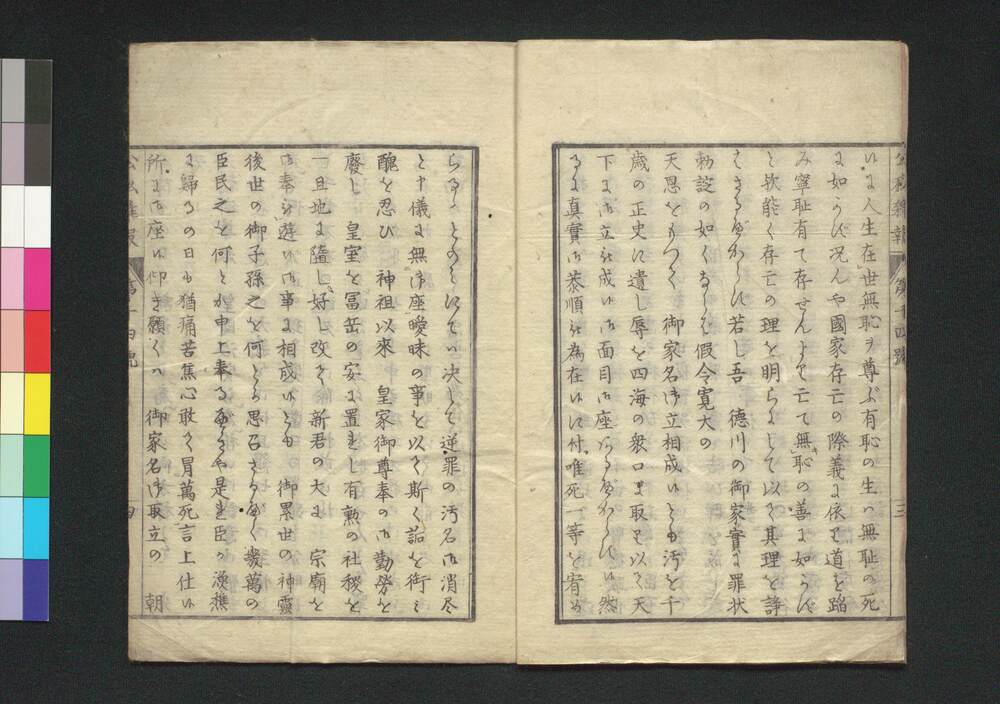 公私雑報 第十四號 三
いに人生在世無恥ヲ尊ぶ有恥の生ハ無恥の死
に如うず况んや國家存亡の際義に依て道を踏
み寧恥有て存せんよりて亡て無恥の善に如うず
と欤能く存亡の理を明らにして以て其理を諍
はざるべからず若し吾 德川の御家實に罪状
勅諚の如くならば假令寛大の
天恩をもつて 御家名御立相成いとも汚を千
歳の正史に遺し辱を四海の衆口に取て以て天
下に御立被成い御面目御座あるべからずい然
るに真實御恭順被為在いに付唯死一等を宥め
らるゝとのみにてハ决して逆罪の汚名御消尽
と申儀に無御座曖昧の事を以て斯く詬を衒ミ
醜を忍び 神祖以來 皇家御尊奉の御勤勞を
廢し 皇室を冨岳の安に置まし有勲の社稷を
一旦地に墮し好し改て新君の大に 宗廟を
御奉じ遊い御事に相成いとも 御累世の神靈
後世の御子孫之を何とか思召さるべく幾萬の
臣民之を何とか申上奉るべきや是まで臣の漁樵
に歸るの日も猶痛苦焦心敢て冒萬死言上仕い
所に御座い仰き願くハ 御家名御取立の 朝
公私雑報 第十四號 四